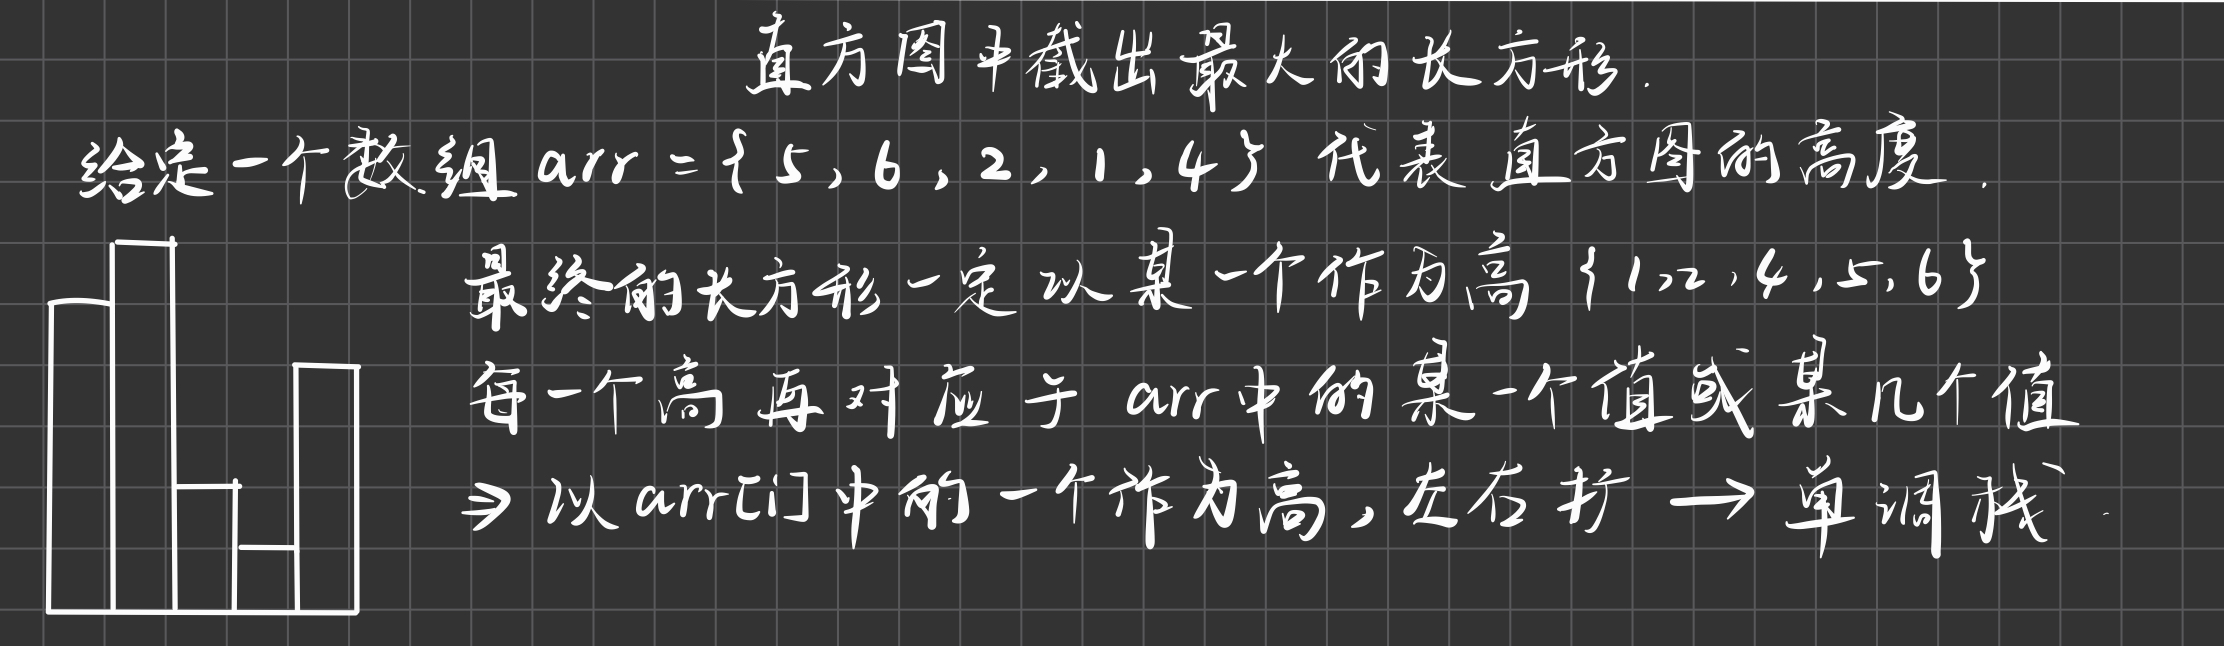 直方图中截出最大的长方形.
给定一个数组 arr = {5, 6, 2, 1, 4} 代表直方图的高度.
最终的长方形一定以某一个作为高 {1,2,4,5,6}
每一个高再对应于 arr中的某一个值或某几个值
⇒ 以 arr[i]中的一个作为高,左右扩 → 单调栈.